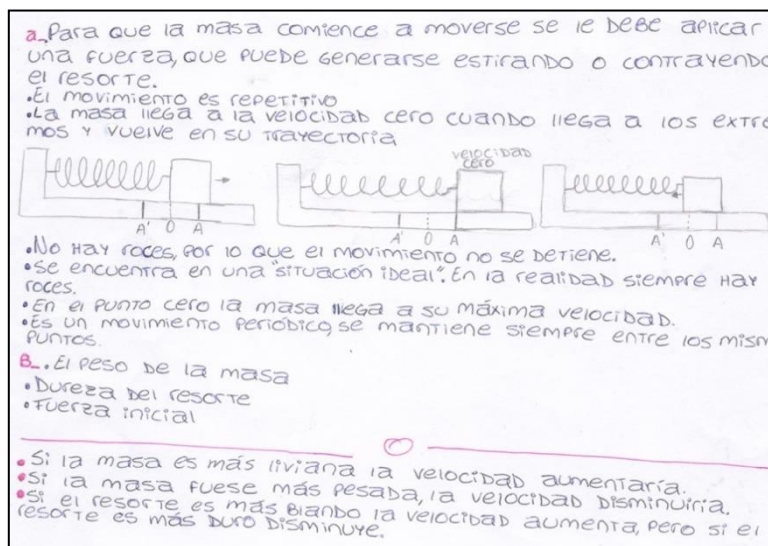 a_Para que la masa comience a moverse se le debe aplicar
una fuerza, que puede generarse estirando o contrayendo
el resorte.
•El movimiento es repetitivo
•La masa llega a la velocidad cero cuando llega a los extre
mos y vuelve en su trayectoria
velocidad
cero
A' O A
A' O A
A' O A
•No hay roces, por lo que el movimiento no se detiene.
•Se encuentra en una "situación ideal". En la realidad siempre hay
roces.
•En el punto cero la masa llega a su máxima velocidad.
•Es un movimiento periódico, se mantiene siempre entre los mism
puntos.
B_.El peso de la masa
•Dureza del resorte
•Fuerza inicial
•Si la masa es más liviana la velocidad aumentaría.
•Si la masa fuese más pesada, la velocidad disminuiría.
•Si el resorte es más blando la velocidad aumenta, pero si el
resorte es más duro disminuye.